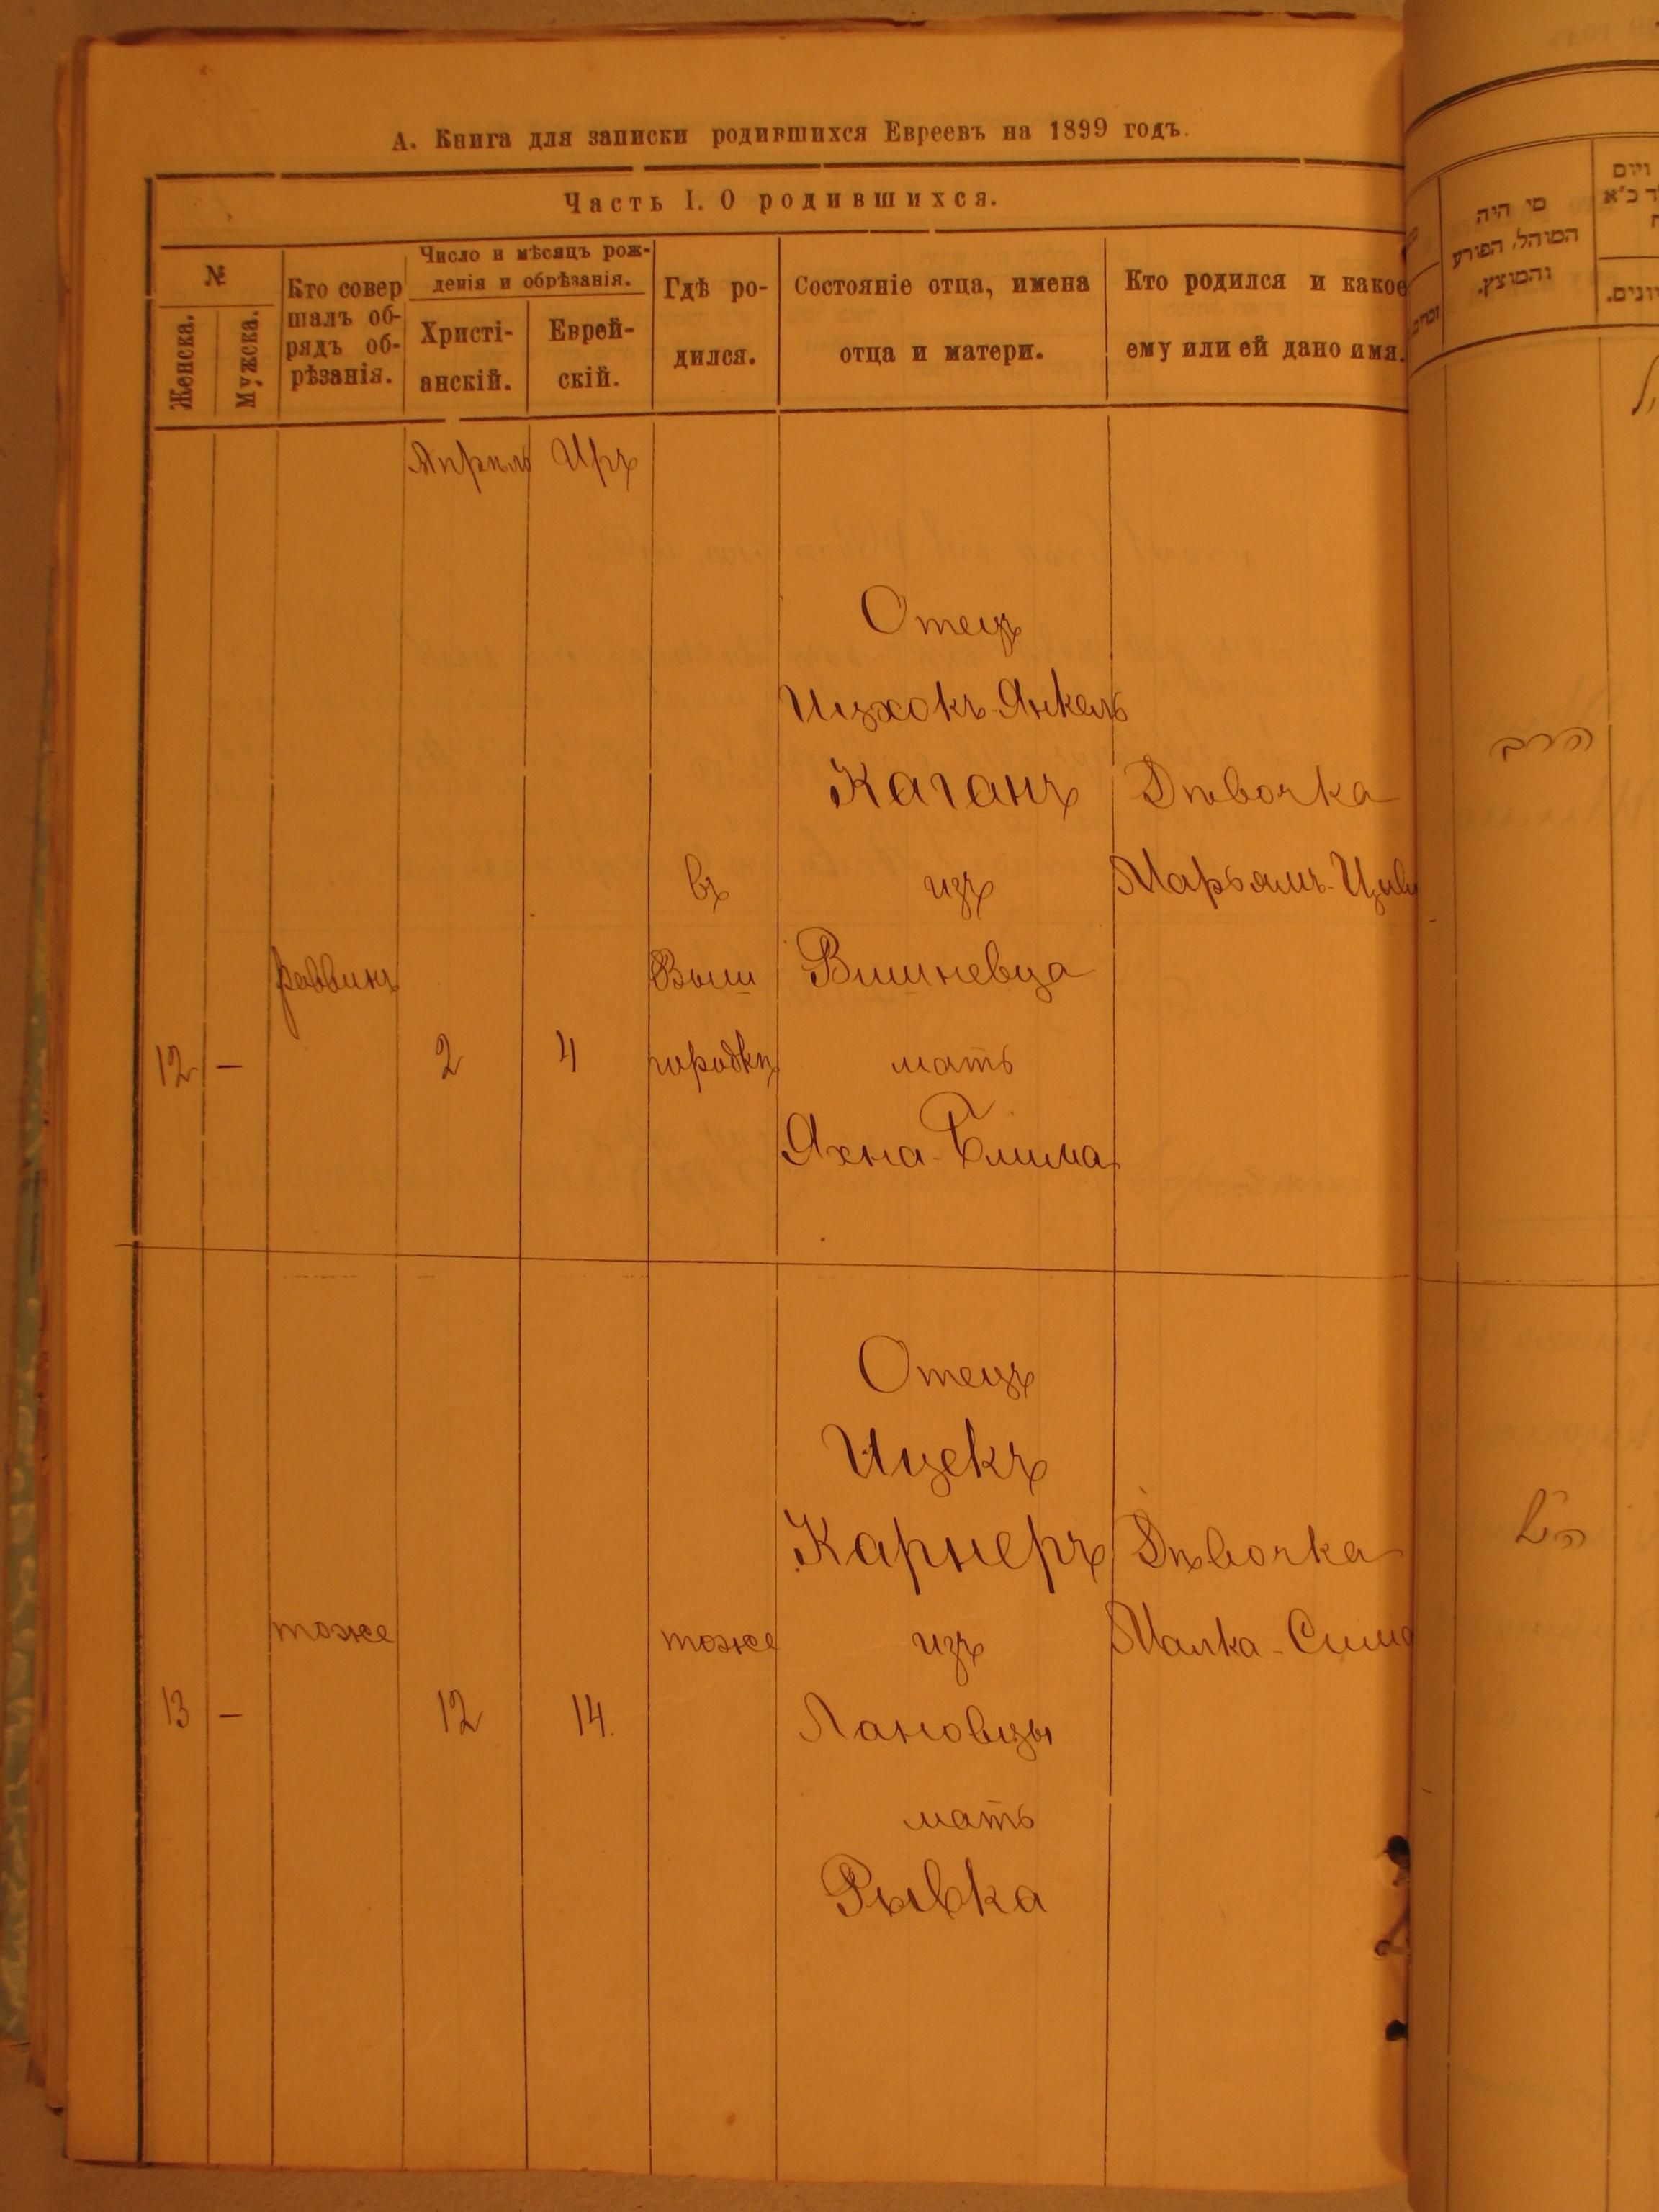 А. Книга для записки родившихся Евреевъ на 1899 годъ.
Часть I. О родившихся.
№
Женска.
Мужска.
Кто совер
шалъ об-
рядъ об-
рѣзанія.
Число и мѣсяцъ рож-
денія и обрѣзанія.
Христі-
анскій.
Еврей-
скій.
Гдѣ ро-
дился.
Состояніе отца, имена
отца и матери.
Кто родился и какое
ему или ей дано имя.
Апрель Иръ
12
—
раввинъ
2
4
въ
Выш
городкѣ
Отецъ
Ицхокъ-Янкель
Каганъ
изъ
Вишневца
мать
Яхна-Блима
Дѣвочка
Марьямъ-Циви
13
—
тоже
12
14.
тоже
Отецъ
Ицекъ
Карнеръ
изъ
Лановцы
мать
Рывка
Дѣвочка
Малка-Сима
מי היה
המוהל, הפורע
והמוצץ.
הרב
הנ״ל